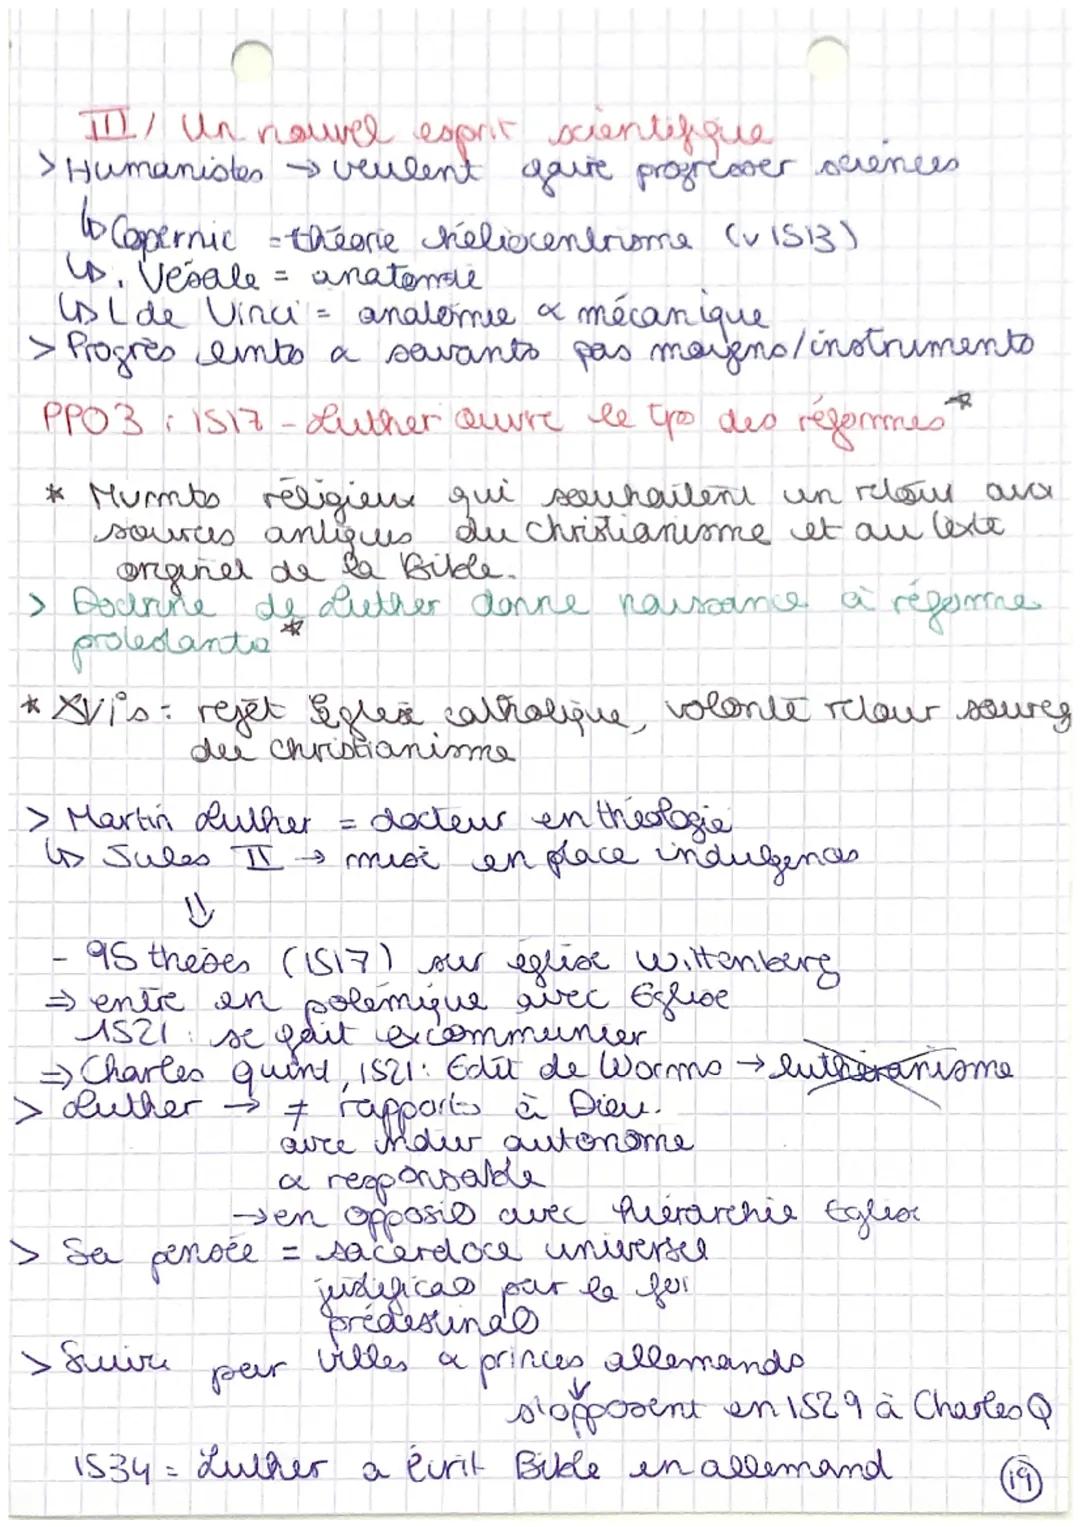 III/ Un nouvel esprit scientifique
> Humanistes → veulent faire progresser sciences
↳ Copernic = théorie héliocentrisme (v 1513)
↳ . Vésale = anatomie
↳ L de Vinci = anatomie & mécanique
> Progrès lents a savants pas moyens/instruments
PPO3 : 1517 - Luther ouvre le tps des réformes*
* Mvmts réligieux qui souhaitent un retour aux
sources antiques du Christianisme et au texte
originel de la Bible.
> Doctrine de Luther donne naissance à réforme
protestante*
* XVIs : rejet Eglise catholique, volonté retour sources
du christianisme
> Martin Luther = docteur en théologie
↳ Jules II → mise en place indulgences
⇓
- 95 theses (1517) sur église Wittenberg
⇒ entre en polémique avec Eglise
1521 : se fait excommunier
⇒ Charles quint, 1521 : Edit de Worms → luthéranisme
> Luther → ≠ rapports à Dieu.
avec indiv autonome
& responsable
→ en opposi° avec hiérarchie Eglise
> Sa pensée = sacerdoce universel
justifica° par la foi
prédestina°
> Suivi par villes & princes allemands
↓
s'opposent en 1529 à Charles Q
1534 = Luther a écrit Bible en allemand
19